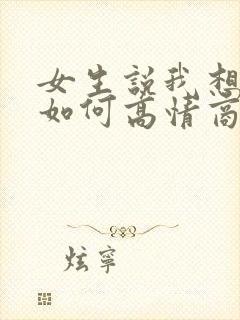 女生說我想
如何高情商
炫寧